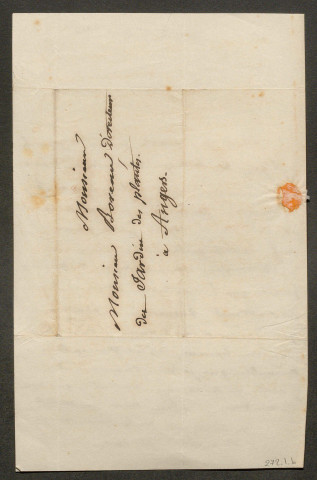 Monsieur
Monsieur Boreau Directeur
du Jardin des plantes.
à Angers.
272.1.6